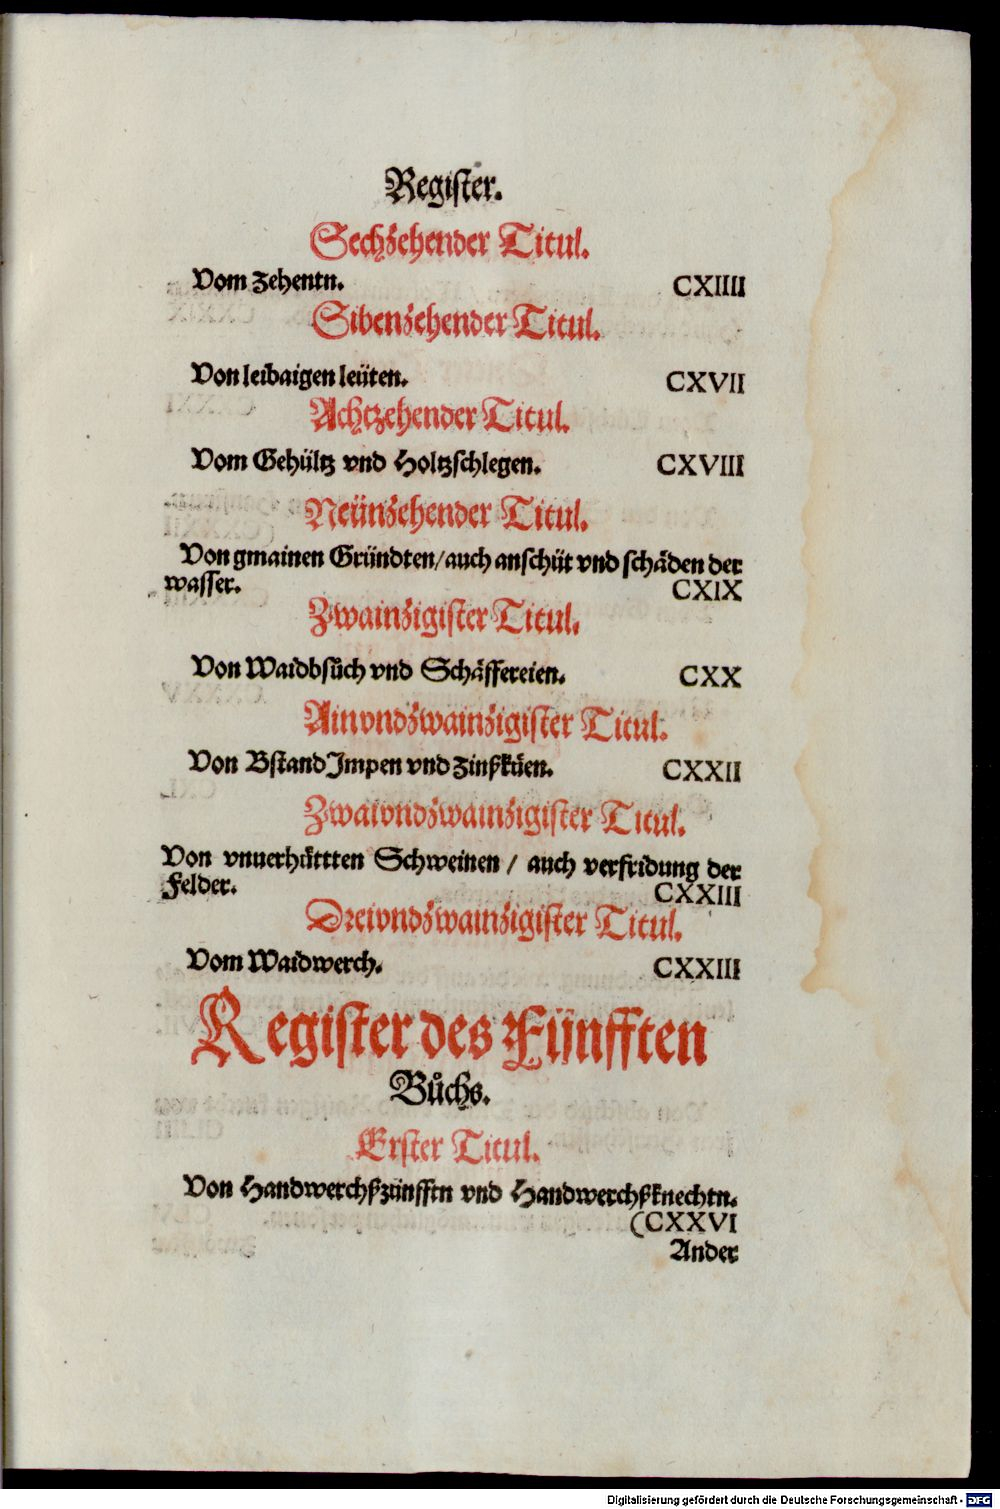 Register.
Sechzehender Titul.
Vom zehentn. CXIIII
Sibenzehender Titul.
Von leibaigen leüten. CXVII
Achtzehender Titul.
Vom Gehültz vnd Holtzschlegen. CXVIII
Neünzehender Titul.
Von gmainen Gründten/auch anschüt vnd schäden der
wasser. CXIX
Zwainzigister Titul.
Von Waidbsůch vnd Schäffereien. CXX
Ainvndzwainzigister Titul.
Von Bstand Impen vnd zinßküen. CXXII
Zwaivndzwainzigister Titul.
Von vnuerhüttten Schweinen / auch verfridung der
Felder. CXXIII
Dreivndzwainzigister Titul.
Vom Waidwerch. CXXIII
Register des Fünfften
Bůchs.
Erster Titul.
Von Handwerchßzünfftn vnd Handwerchßknechtn.
(CXXVI
Ander
Digitalisierung gefördert durch die Deutsche Forschungsgemeinschaft - DFG